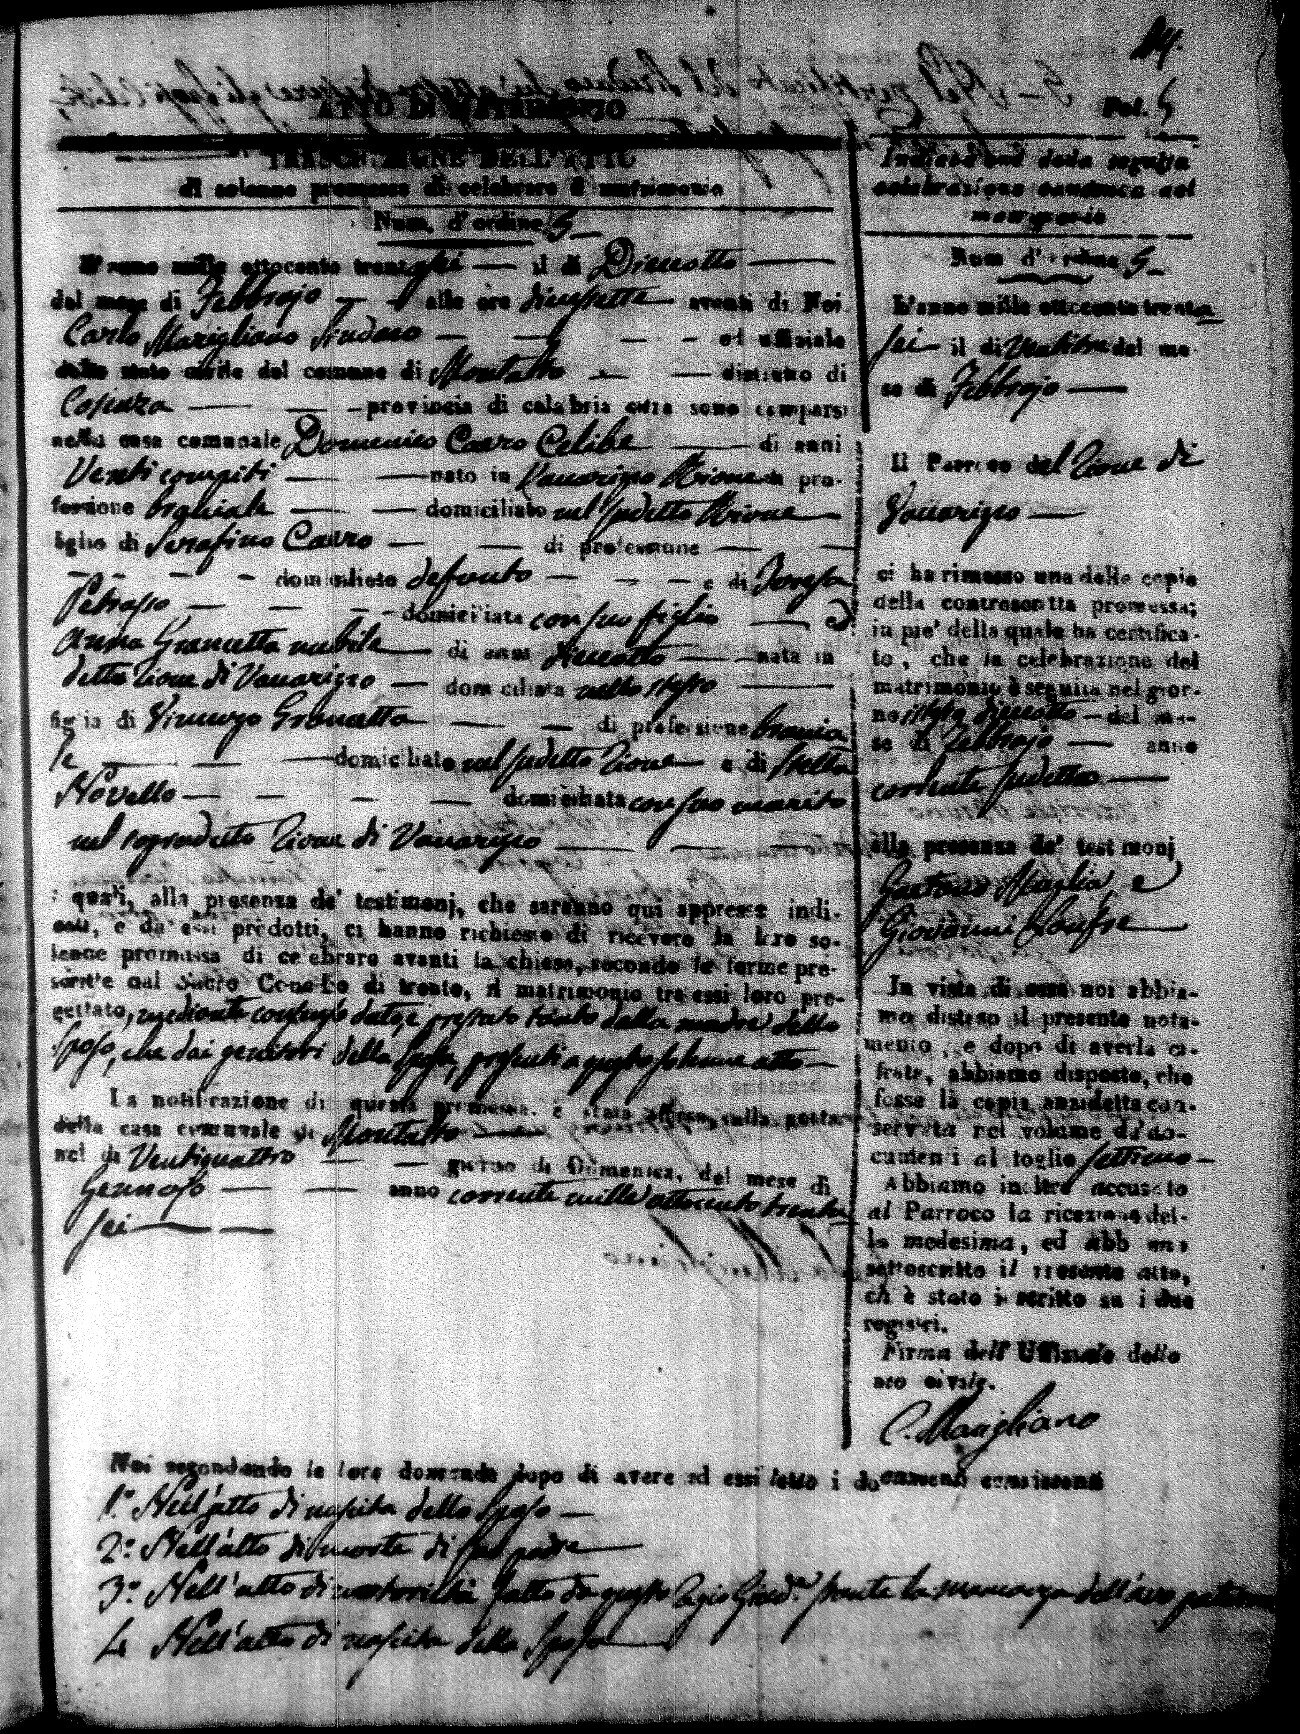 Fol. 5
ATTO DI MATRIMONIO
ISCRIZIONE DELL'ATTO
di solenne promessa di celebrare il matrimonio
Num. d'ordine 5
L'anno mille ottocento trentasei il di Dieciotto
del mese di Febbrajo alle ore diecisette avanti di Noi
Carlo Marigliano Sindaco ed uffiziale
dello stato civile del comune di Montalto distretto di
Cosenza provincia di calabria citra sono comparsi
nella casa comunale Domenico Cavro Celibe di anni
Venti compiti nato in Vaccarizzo Rione di pro-
fessione bracciale domiciliato nel sudetto Rione
figlio di Serafino Cavro di professione
domiciliato defonto e di Teresa
Petrasso domiciliata con suo figlio E
Anna Grancetta nubile di anni dieciotto nata in
detto Rione di Vaccarizzo domiciliata nello stesso
figlia di Vincenzo Grancetta di professione braccia
le domiciliato nel sudetto Rione e di Stella
Novello domiciliata con suo marito
nel sopradetto Rione di Vaccarizzo
i quali, alla presenza de' testimonj, che saranno qui appresso indi-
cati, e da essi prodotti, ci hanno richiesto di ricevere la loro so-
lenne promessa di celebrare avanti la chiesa, secondo le forme pre-
scritte dal Sacro Concilio di trento, il matrimonio tra essi loro pro-
gettato, mediante consenso datoci prestato tanto dalla madre dello
Sposo, che dai genitori della Sposa, presenti a questo solenne atto
La notificazione di questa promessa è stata affissa sulla porta
della casa comunale di Montalto
nel di Ventiquattro giorno di Domenica, del mese di
Gennajo anno corrente mille ottocento trenta
sei
Indicazione della seguita
celebrazione canonica del
matrimonio
Num d'ordine 5
L'anno mille ottocento trenta
sei il di Ventitre del me
se di Febbrajo
Il Parroco del Rione di
Vaccarizzo
ci ha rimesso una delle copie
della controscritta promessa;
in pie' della quale ha certifica-
to, che la celebrazione del
matrimonio è seguita nel gior-
no dieciotto del me-
se di Febbrajo anno
corrente sudetto
alla presenza de' testimonj
Gaetano Staglia, e
Giovanni
In vista di essa noi abbia-
mo disteso il presente nota-
mento, e dopo di averla ci-
frata, abbiamo disposto, che
fosse la copia anzidetta con-
servata nel volume di do-
cumenti al foglio settimo
Abbiamo inoltre accusato
al Parroco la ricezione del-
la medesima, ed abbiamo
sottoscritto il presente atto,
ch' è stato iscritto su i due
registri.
Firma dell'Uffiziale dello
ato civile.
C. Marigliano
Noi secondando la loro domanda dopo di avere ad essi letto i documenti consistenti
1.º Nell'atto di nascita dello Sposo
2.º Nell'atto di morte di suo padre
3.º Nell'atto di notorietà fatto da questo Regio Giud.º stante la mancanza dell'avo paterno
4 Nell'atto di nascita della Sposa